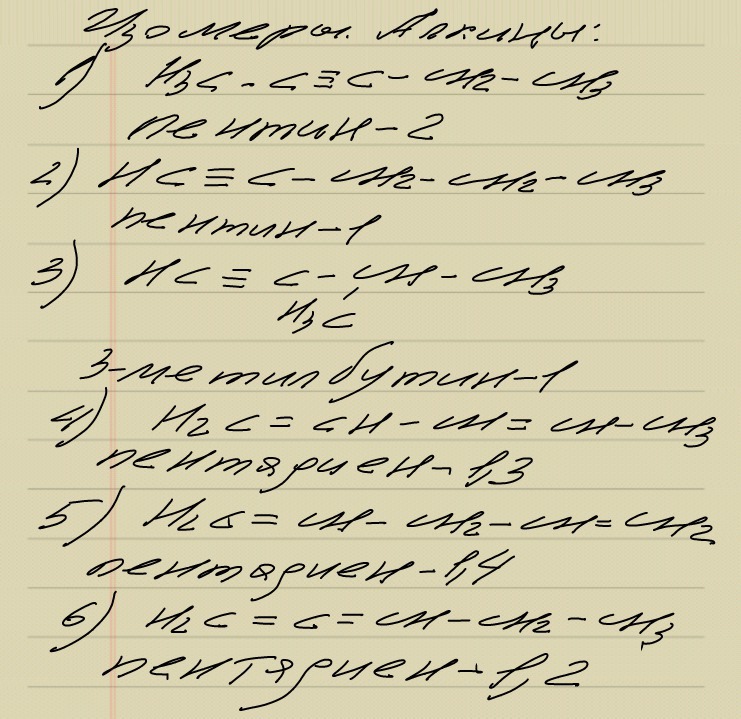 Изомеры. Алкины:
1) H₃C - C ≡ C - CH₂ - CH₃
пентин-2
2) HC ≡ C - CH₂ - CH₂ - CH₃
пентин-1
3) HC ≡ C - CH - CH₃
H₃C
3-метилбутин-1
4) H₂C = CH - CH = CH - CH₃
пентадиен-1,3
5) H₂C = CH - CH₂ - CH = CH₂
пентадиен-1,4
6) H₂C = C = CH - CH₂ - CH₃
пентадиен-1,2